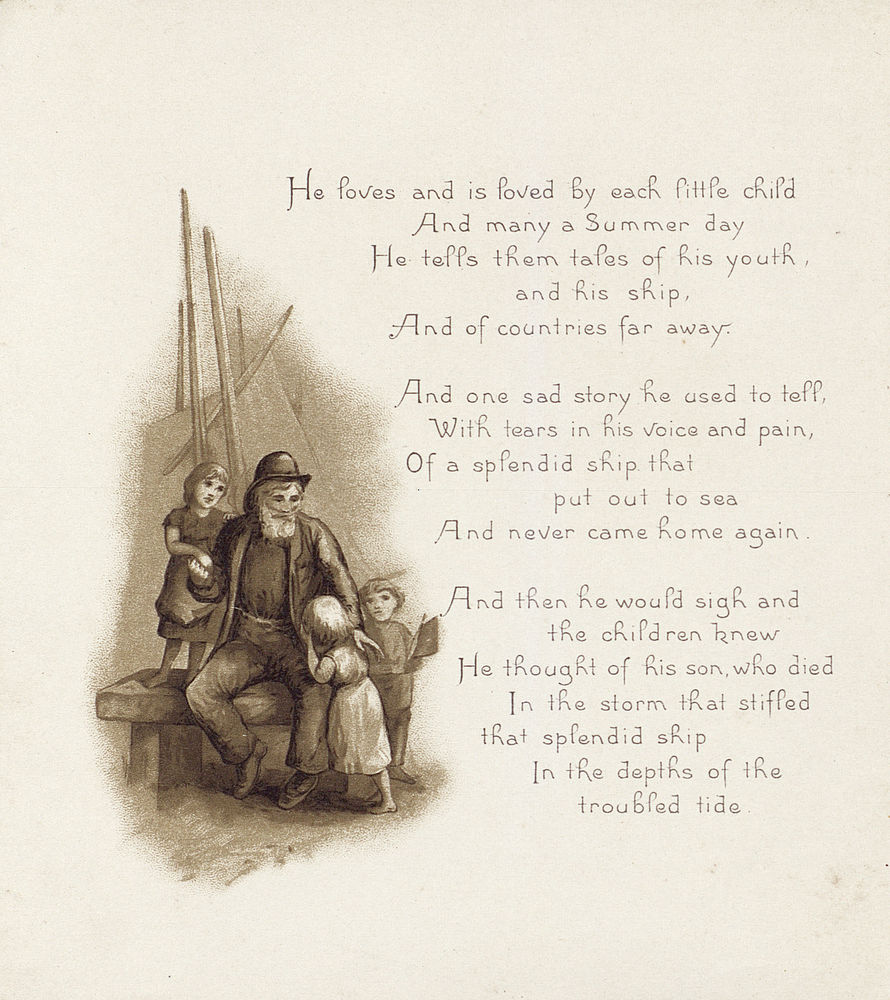 He loves and is loved by each little child
And many a Summer day
He tells them tales of his youth,
and his ship,
And of countries far away.
And one sad story he used to tell,
With tears in his voice and pain,
Of a splendid ship that
put out to sea
And never came home again.
And then he would sigh and
the children knew
He thought of his son, who died
In the storm that stifled
that splendid ship
In the depths of the
troubled tide.